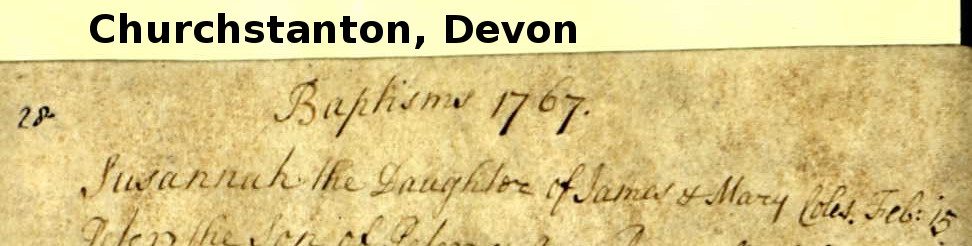 Churchstanton, Devon
28
Baptisms 1767.
Susannah the Daughter of James & Mary Coles. Feb: 15
Peter the Son of Peter